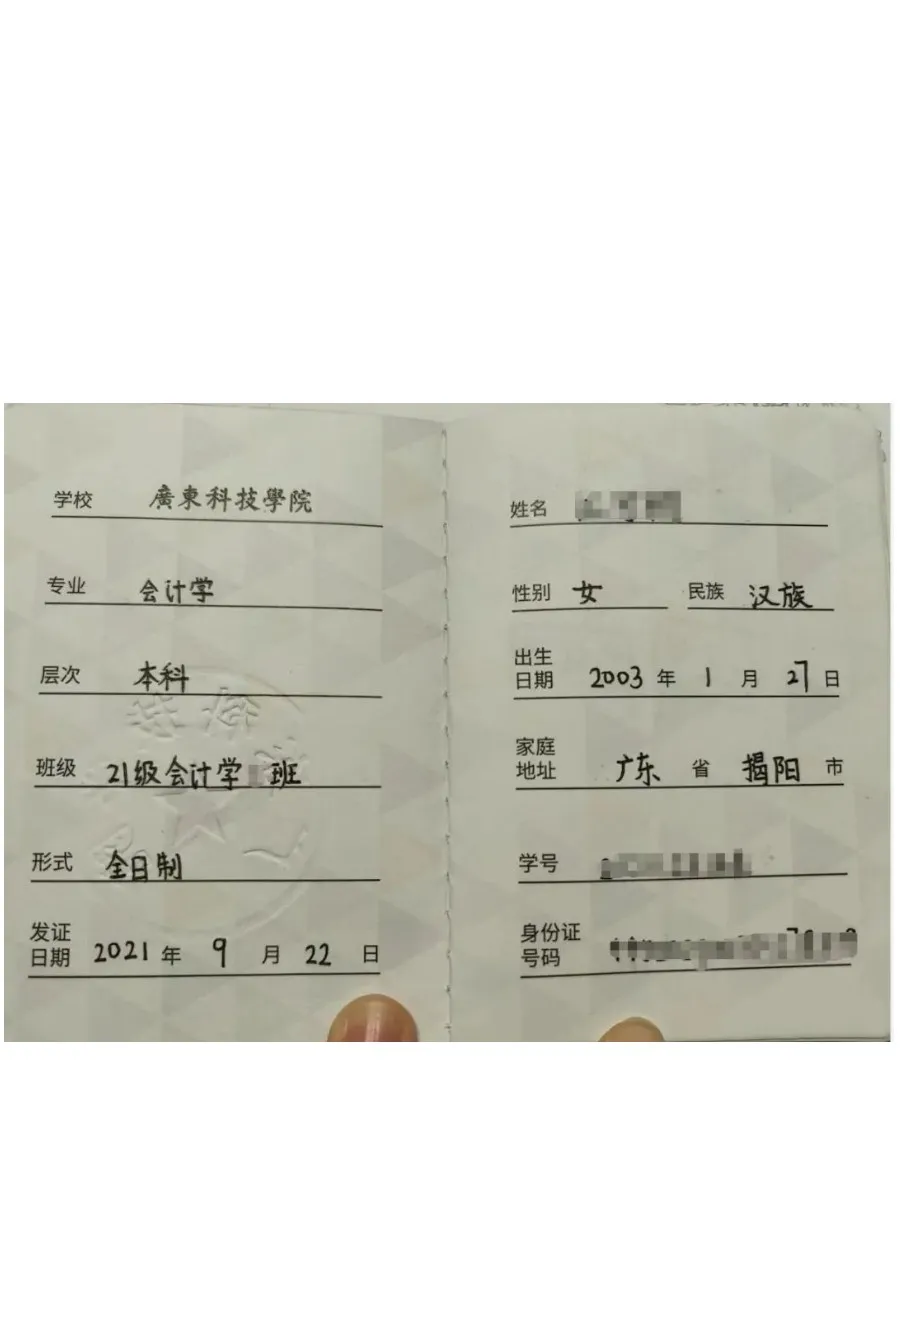 学校 廣東科技學院
专业 会计学
层次 本科
班级 21级会计学 班
形式 全日制
发证日期 2021 年 9 月 22 日
姓名
性别 女 民族 汉族
出生日期 2003 年 1 月 27 日
家庭地址 广东 省 揭阳 市
学号
身份证号码